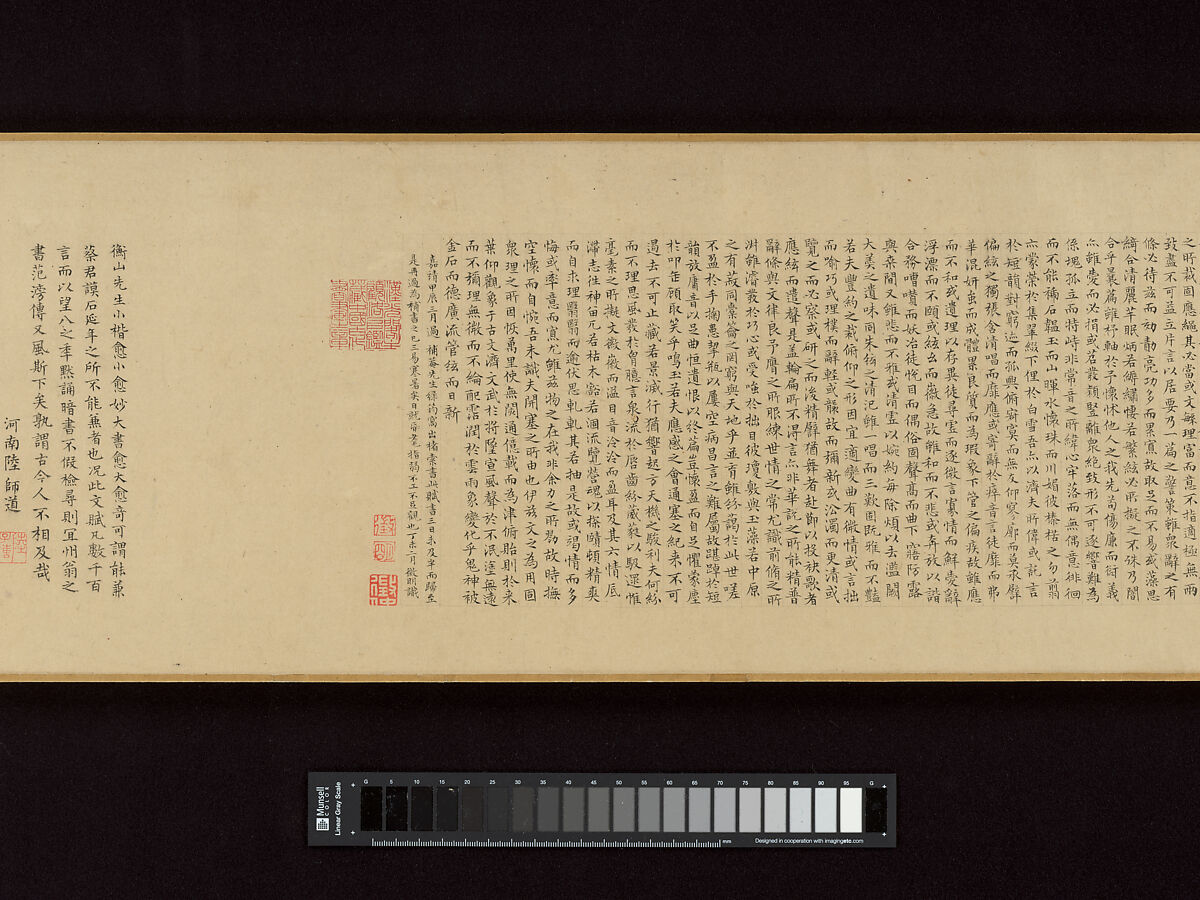 之時裁固應繩其必當或文繁理富而意不指適極無兩
致盡不可益立片言以居要乃一篇之警策雖衆辭之有
條必待茲而効勣亮功多而累寡故取足而不易或藻思
綺合清麗芊眠炳若縟繡悽若繁絃必所擬之不殊乃闇
合乎曩篇雖杼軸於予懷怵他人之我先苟傷廉而愆義
亦雖愛而必捐或苕發穎豎離衆絶致形不可逐響難為
係塊孤立而特峙非常音之所緯心牢落而無偶意徘徊
而不能揥石韞玉而山暉水懷珠而川媚彼榛楛之勿翦
亦蒙榮於集翠綴下俚於白雪吾亦以濟夫所偉或託言
於短韻對窮迹而孤興俯寂寞而無友仰寥廓而莫承譬
偏絃之獨張含清唱而靡應或寄辭於瘁音言徒靡而弗
華混妍蚩而成體累良質而為瑕象下管之偏疾故雖應
而不和或遺理以存異徒尋虛而逐微言寡情而鮮愛辭
浮漂而不歸或絃幺而徽急故雖和而不悲或奔放以諧
合務嘈囋而妖冶徒悅目而偶俗固聲高而曲下寤防露
與桑間又雖悲而不雅或清虛以婉約每除煩以去濫闕
大羹之遺味同朱絃之清汜雖一唱而三歎固既雅而不豔
若夫豐約之裁俯仰之形因宜適變曲有微情或言拙
而喻巧或理樸而辭輕或襲故而彌新或沿濁而更清或
覽之而必察或研之而後精譬猶舞者赴節以投袂歌者
應絃而遣聲是蓋輪扁所不得言亦非華說之所能精普
辭條與文律良予膺之所服練世情之常尤識前脩之所
淑雖濬發於巧心或受嗤於拙目彼瓊敷與玉藻若中原
之有菽同橐籥之罔窮與天地乎並育雖紛藹於此世嗟
不盈於手掬患挈瓶以屢空病昌言之難屬故踸踔於短
韻放庸音以足曲恒遺恨以終篇豈懷盈而自足懼蒙塵
於叩缶顧取笑乎鳴玉若夫應感之會通塞之紀來不可
遏去不可止藏若景滅行猶響起方天機之駿利夫何紛
而不理思風發於胷臆言泉流於唇齒紛葳蕤以馺遝惟
毫素之所擬文徽徽而溢目音泠泠而盈耳及其六情底
滯志往神留兀若枯木豁若涸流覽營魂以探賾頓精爽
而自求理翳翳而逾伏思軋軋其若抽是故或竭情而多
悔或率意而寡尤雖茲物之在我非余力之所勠故時撫
空懷而自惋吾未識夫開塞之所由也伊茲文之為用固
衆理之所因恢萬里使無閡通億載而為津俯貽則於來
葉仰觀象乎古人濟文武於將墜宣風聲於不泯塗無遠
而不彌理無微而不綸配霑潤於雲雨象變化乎鬼神被
金石而德廣流管絃而日新
嘉靖甲辰三月過補菴先生綠筠窩出楮索書此賦書三日未及半而歸至
是再過為補書之也三易寒暑矣日就昏耄指弱不工不足觀也丁未二月徵明識
徵明
衡山先生小楷愈小愈妙大書愈大愈奇可謂能兼
蔡君謨石延年之所不能兼者也況此文賦凡數千百
言而以望八之年默誦暗書不假檢尋則宜州翁之
書范滂傳又風斯下矣孰謂古今人不相及哉
河南陸師道
Munsell COLOR
Linear Gray Scale
G 5 10 15 20 25 30 35 40 45 50 55 60 65 70 75 80 85 90 95 G
mm
Designed in cooperation with imagingetc.com